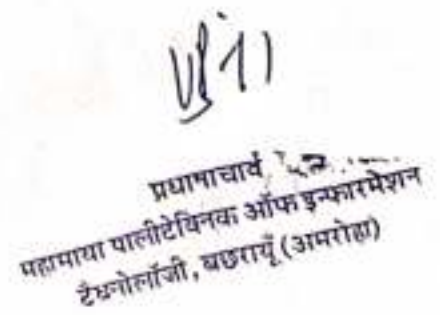 प्रधानाचार्य
महामाया पालीटेक्निक ऑफ इन्फारमेशन
टैक्नोलॉजी, बछरायूँ (अमरोहा)